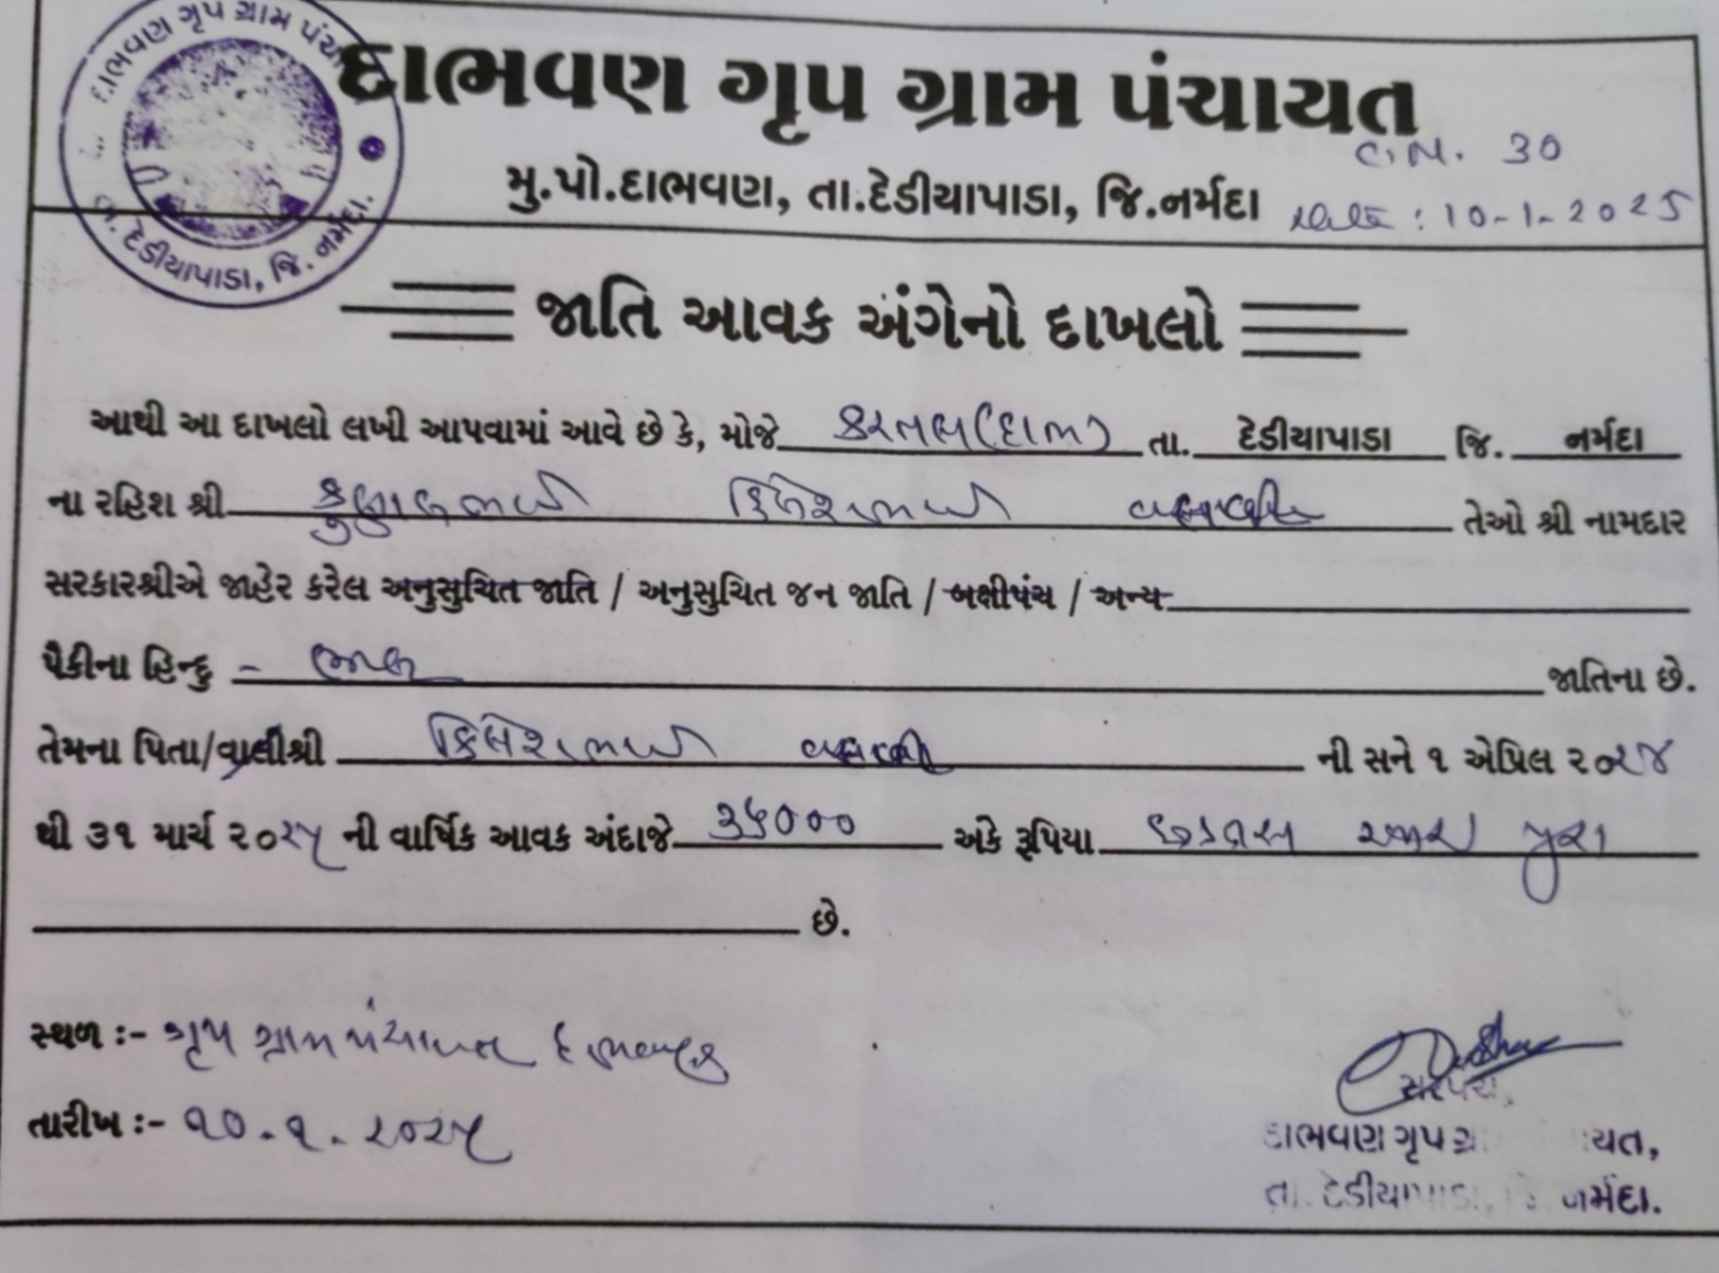 દાભવણ ગૃપ ગ્રામ પંચાયત
C.N. 30
મુ.પો.દાભવણ, તા.દેડીયાપાડા, જિ.નર્મદા
Date : 10-1-2025
દાભવણ ગૃપ ગ્રામ
તા. દેડીયાપાડા, જિ. નર્મદા.
જાતિ આવક અંગેનો દાખલો
આથી આ દાખલો લખી આપવામાં આવે છે કે, મોજે કરતલ(દાભ) તા. દેડીયાપાડા જિ. નર્મદા
ના રહિશ શ્રી કુણાલભાઈ વસાવા તેઓ શ્રી નામદાર
સરકારશ્રીએ જાહેર કરેલ અનુસુચિત જાતિ / અનુસુચિત જન જાતિ / બક્ષીપંચ / અન્ય
પૈકીના હિન્દુ - ભીલ જાતિના છે.
તેમના પિતા/વાલીશ્રી વસાવા ની સને ૧ એપ્રિલ ૨૦૨૪
થી ૩૧ માર્ચ ૨૦૨૫ ની વાર્ષિક આવક અંદાજે ૩૬૦૦૦ અંકે રૂપિયા છત્રીસ હજાર પુરા
છે.
સ્થળ :- ગૃપ ગ્રામ પંચાયત દાભવણ
તારીખ :- ૧૦-૧-૨૦૨૫
સરપંચ,
દાભવણ ગૃપ ગ્રા યત,
તા. દેડીયાપાડા, જિ. નર્મદા.